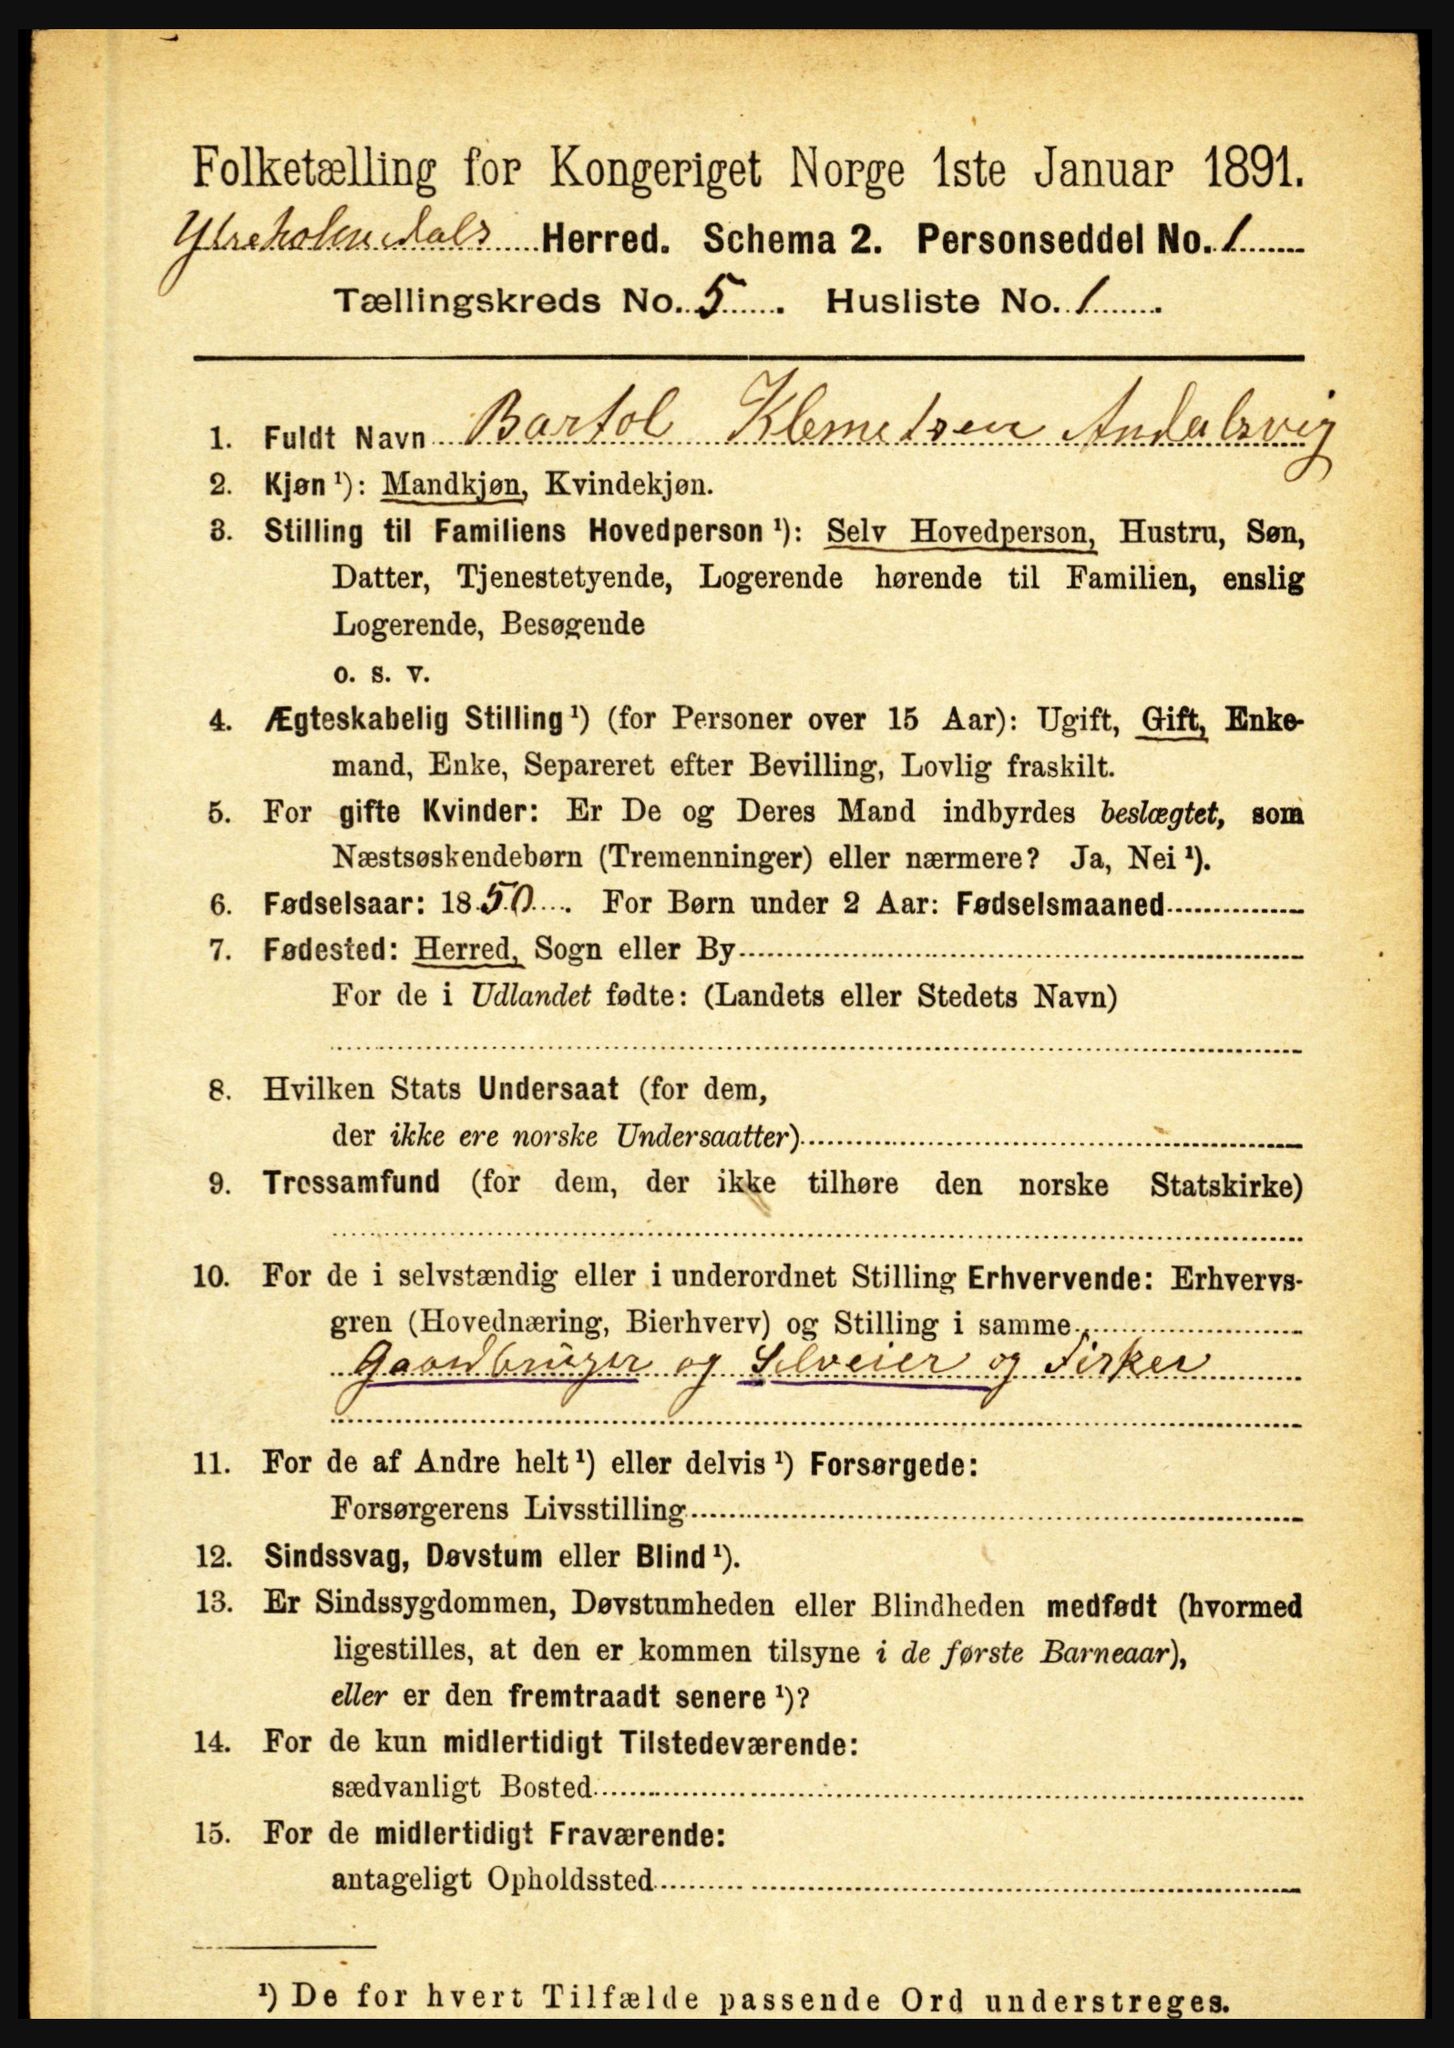 Folketælling for Kongeriget Norge 1ste Januar 1891.
Ytreholmedals Herred. Schema 2. Personseddel No. 1
Tællingskreds No. 5. Husliste No. 1.
1. Fuldt Navn Bartol Klemetsen Andalsvig
2. Kjøn ¹): Mandkjøn, Kvindekjøn.
3. Stilling til Familiens Hovedperson ¹): Selv Hovedperson, Hustru, Søn,
Datter, Tjenestetyende, Logerende hørende til Familien, enslig
Logerende, Besøgende
o. s. v.
4. Ægteskabelig Stilling ¹) (for Personer over 15 Aar): Ugift, Gift, Enke-
mand, Enke, Separeret efter Bevilling, Lovlig fraskilt.
5. For gifte Kvinder: Er De og Deres Mand indbyrdes beslægtet, som
Næstsøskendebørn (Tremenninger) eller nærmere? Ja, Nei ¹).
6. Fødselsaar: 1850. For Børn under 2 Aar: Fødselsmaaned
7. Fødested: Herred, Sogn eller By
For de i Udlandet fødte: (Landets eller Stedets Navn)
8. Hvilken Stats Undersaat (for dem,
der ikke ere norske Undersaatter)
9. Trossamfund (for dem, der ikke tilhøre den norske Statskirke)
10. For de i selvstændig eller i underordnet Stilling Erhvervende: Erhvervs-
gren (Hovednæring, Bierhverv) og Stilling i samme
Gaardbruger og Selveier og Fisker
11. For de af Andre helt ¹) eller delvis ¹) Forsørgede:
Forsørgerens Livsstilling
12. Sindssvag, Døvstum eller Blind ¹).
13. Er Sindssygdommen, Døvstumheden eller Blindheden medfødt (hvormed
ligestilles, at den er kommen tilsyne i de første Barneaar),
eller er den fremtraadt senere ¹)?
14. For de kun midlertidigt Tilstedeværende:
sædvanligt Bosted
15. For de midlertidigt Fraværende:
antageligt Opholdssted
¹) De for hvert Tilfælde passende Ord understreges.